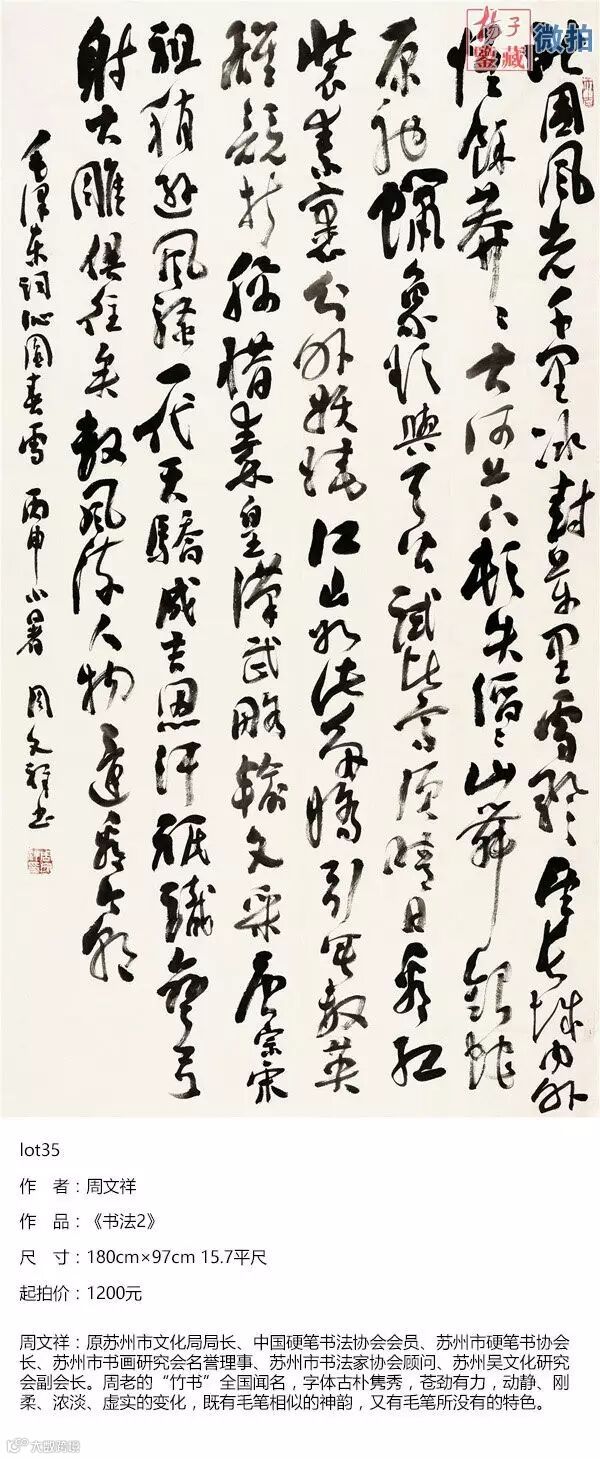 揚子
鑒藏
微拍
北國風光千里冰封萬里雪飄望長城内外
惟餘莽〻大河上下頓失滔〻山舞銀蛇
原馳蠟象欲與天公試比高須晴日看紅
裝素裹分外妖嬈江山如此多嬌引無數英
雄競折腰惜秦皇漢武略輸文采唐宗宋
祖稍遜風騷一代天驕成吉思汗祇識彎弓
射大雕俱往矣數風流人物還看今朝
毛澤東詞沁園春雪 丙申小暑 周文祥書
lot35
作 者：周文祥
作 品：《书法2》
尺 寸：180cm×97cm 15.7平尺
起拍价：1200元
周文祥：原苏州市文化局局长、中国硬笔书法协会会员、苏州市硬笔书协会
长、苏州市书画研究会名誉理事、苏州市书法家协会顾问、苏州吴文化研究
会副会长。周老的“竹书”全国闻名，字体古朴隽秀，苍劲有力，动静、刚
柔、浓淡、虚实的变化，既有毛笔相似的神韵，又有毛笔所没有的特色。
大数跨境